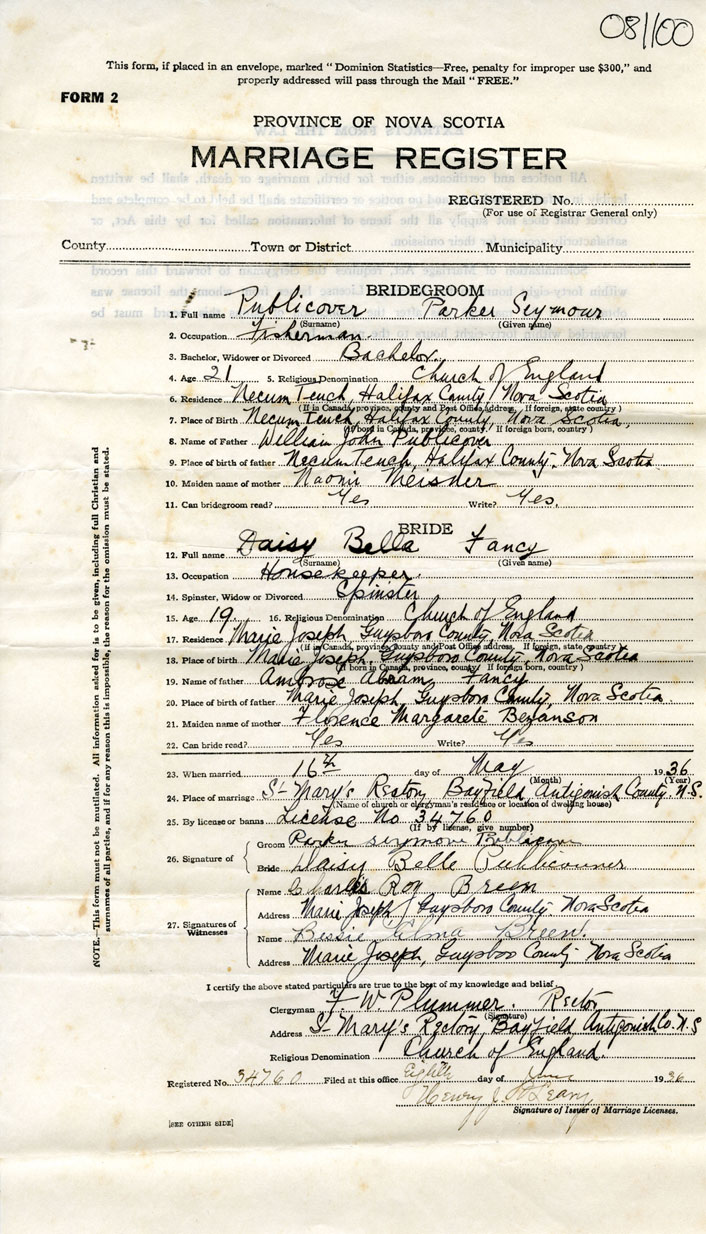 081100
This form, if placed in an envelope, marked "Dominion Statistics—Free, penalty for improper use $300," and
properly addressed will pass through the Mail "FREE."
FORM 2
PROVINCE OF NOVA SCOTIA
MARRIAGE REGISTER
REGISTERED No.
(For use of Registrar General only)
County Town or District Municipality
BRIDEGROOM
1. Full name Publicover Parker Seymour
(Surname) (Given name)
2. Occupation Fisherman
3. Bachelor, Widower or Divorced Bachelor
4. Age 21 5. Religious Denomination Church of England
6. Residence Necum Teuch, Halifax County, Nova Scotia
(If in Canada, province, county and Post Office address. If foreign, state country)
7. Place of Birth Necum Teuch, Halifax County, Nova Scotia,
(If born in Canada, province, county. If foreign born, country)
8. Name of Father William John Publicover
9. Place of birth of father Necum Teuch, Halifax County, Nova Scotia
10. Maiden name of mother Naomi Meisner
11. Can bridegroom read? Yes Write? Yes.
BRIDE
12. Full name Daisy Bella Fancy
(Surname) (Given name)
13. Occupation Housekeeper.
14. Spinster, Widow or Divorced Spinster
15. Age 19. 16. Religious Denomination Church of England
17. Residence Marie Joseph, Guysboro County, Nova Scotia
(If in Canada, province, county and Post Office address. If foreign, state country)
18. Place of birth Marie Joseph, Guysboro County, Nova Scotia
(If born in Canada, province, county. If foreign born, country)
19. Name of father Ambrose Abram Fancy
20. Place of birth of father Marie Joseph, Guysboro County, Nova Scotia
21. Maiden name of mother Florence Margarete Bezanson
22. Can bride read? Yes Write? Yes
23. When married 16th day of May 1936
(Month) (Year)
24. Place of marriage St Mary's Rectory, Bayfield, Antigonish County, N.S.
(Name of church or clergyman's residence or location of dwelling house)
25. By license or banns License No 34760
(If by license, give number)
26. Signature of
Groom Parker Seymour Publicover
Bride Daisy Belle Publicouner
27. Signatures of Witnesses
Name Charles Roy Breen
Address Marie Joseph, Guysboro County Nova Scotia
Name Bessie Breen
Address Marie Joseph, Guysboro County Nova Scotia
I certify the above stated particulars are true to the best of my knowledge and belief.
Clergyman F W Plummer. Rector
(Signature)
Address St Mary's Rectory, Bayfield, Antigonish Co. N.S
Religious Denomination Church of England.
Registered No. 34760 Filed at this office Eighth day of June 1936
Henry J.
Signature of Issuer of Marriage Licenses.
[SEE OTHER SIDE]
NOTE.—This form must not be mutilated. All information asked for is to be given, including full Christian and
surnames of all parties, and if for any reason this is impossible, the reason for the omission must be stated.